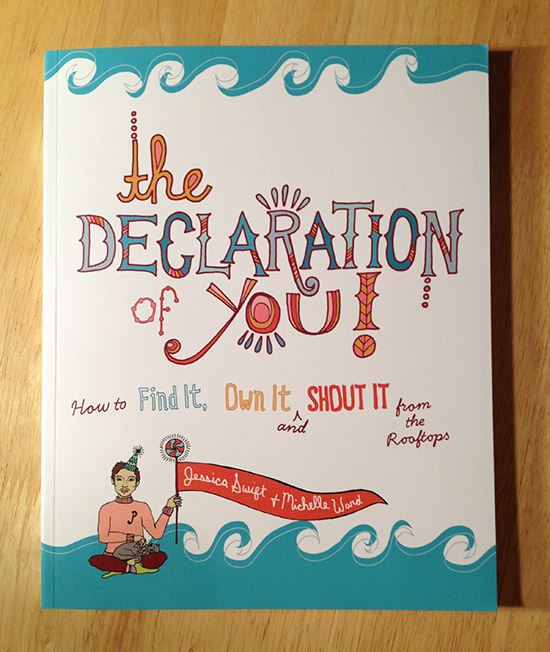 the
DECLARATION
of YOU!
How to Find It, Own It and SHOUT IT from the Rooftops
Jessica Swift + Michelle Ward
P